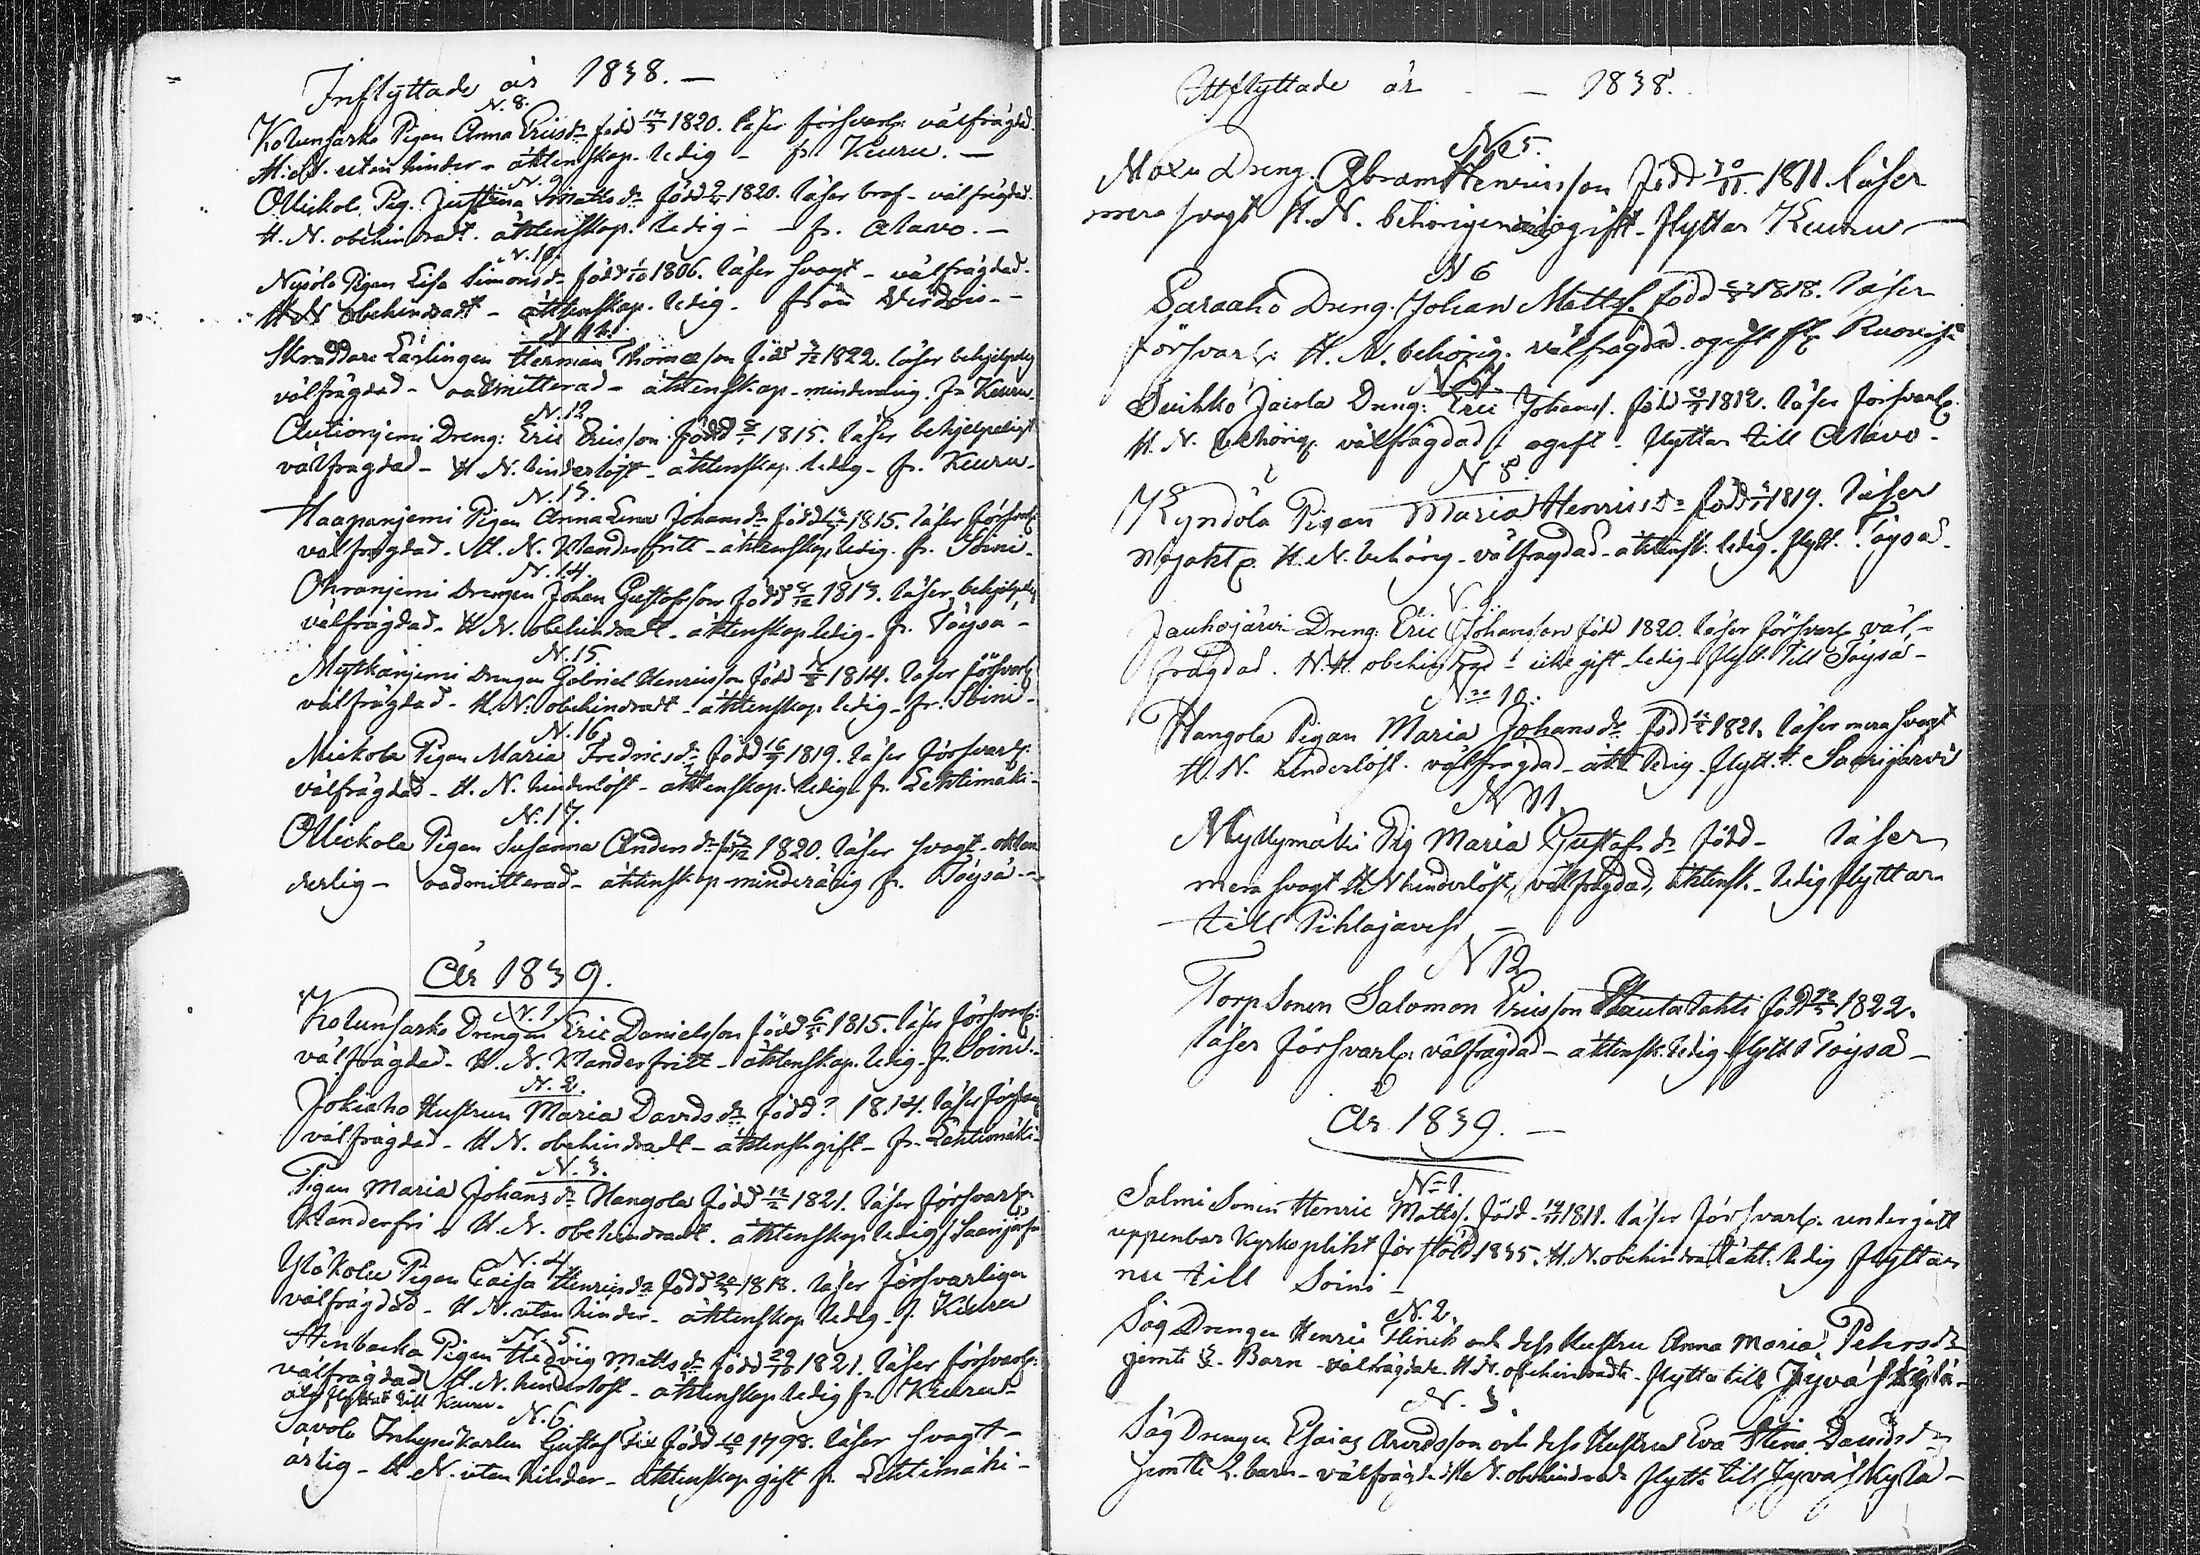 Inflyttade år 1838. —
N. 8.
Kolunsarka Pigan Anna Ericsdr född 1820. läser försvarl: välfrägdad
H. N. utan hinder - äktenskap ledig - fr. Keuru. —
N. 9
Mickol. Pig. Justina Mattsdr född 1820. läser braf - välfrägdad
H. N. obehindradt. äktenskap. ledig - - fr. Alavo. —
N. 10.
Nysölä Pigan Lisa Simonsdr född 1806. läser svagt - välfrägdad.
H N obehindradt - äktenskap. ledig - från Virdois -
N 11.
Skräddare Lärlingen Herman Thomasson född 1822. läser behjelpelig
välfrägdad - oadmitterad - äktenskap - minderårig. fr Keuru.
N. 12
Autionjemi Dreng: Eric Ericsson född 1815. läser behjelpeligt
välfrägdad - H N. hinderlöst - äktenskap ledig - fr. Keuru -
N. 13.
Haapanjemi Pigan Anna Lena Johansdr född 1815. läser försvarl:
välfrägdad. H. N. klanderfritt - äktenskap ledig. fr. Soini -
N. 14.
Ohranjemi Drengen Johan Gustafsson född 1813. läser behjelpelig
välfrägdad - H N. obehindradt - äktenskap ledig - fr. Töysä -
N. 15
Matkanjemi Drengen Gabriel Henricsson född 1814. läser försvarl
välfrägdad - H. N. obehindradt - äktenskap ledig - fr. Soini -
N. 16
Mickola Pigan Maria Fredricsdr född 16/9 1819. läser försvarl:
välfrägdad - H. N. hinderlöst - äktenskap. ledig fr. Lehtimäki -
N. 17.
Mickola Pigan Susanna Andersdr född 1820. läser svagt - oklan
derlig - oadmitterad - äktenskap - minderårig fr. Töysä -
År 1839.
N. 1
Kolunsarka Drengen Eric Danielsson född 6/5 1815. läser försvarl:
välfrägdad - H. N. klanderfritt - äktenskap. ledig fr. Soini -
N. 2.
Jokiaho Hustrun Maria Davidsdr född? 1814. läser försvarl
välfrägdad - H N. obehindradt - äktensk gift - fr. Lehtimäki -
N. 3.
Pigan Maria Johansdr Hangola född 12/2 1821. läser försvarl:
klanderfri - H. N. obehindradt. äktenskap ledig f Saarijärfvi
N. 4
Yläkolu Pigan Caisa Henricsdr född 1818. läser försvarligen
välfrägdad - H N. utan hinder - äktenskap ledig - f. Keuru
N. 5.
Stenbacka Pigan Hedvig Mattsdr född 29/10 1821. läser försvarl:
välfrägdad H. N. hinderlöst - äktenskap ledig fr. Keuru -
flyttat till Keuru -
N. 6.
Savola Inhyseskarlen Gustaf Fix född 1798. läser svagt -
ärlig - H. N. utan hinder - äktenskap gift fr. Lehtimäki -
Utflyttade år - - 1838.
N 5.
Maxu Dreng. Abram Henricsson född 30/11 1811 läser
mera svagt H. N. behörigen ogift - flyttar Keuru —
N 6
Saraaho Dreng. Johan Mattss. född 1818. läser
försvarl: H. N. behörig. välfrägdad. ogift fl: Ruovesi
N 7
Suihko Jacola Dreng: Eric Johanss. född 1812. läser försvarl:
H. N. behörig. välfrägdad - ogift - flyttar till Alavo -
N 8.
Kyndölä Pigan Maria Henricsdr född 1819. läser
nöjaktl. H. N. behörig - välfrägdad - äktensk. ledig. flytt. Töysä -
N. 9
Jauhojärvi Dreng. Eric Johansson född 1820. läser försvarl väl-
frägdad. N. H. obehindrad - icke gift - ledig - flytt. till Töysä -
No 10.
Hangola Pigan Maria Johansdr född 12/2 1821. läser mera svagt
H. N. hinderlöst. välfrägdad - äkt ledig. flytt. t. Saarijärvi
N 11.
Myllymäki Pig Maria Gustafsdr född - läser
mera svagt H N hinderlöst, välfrägdad, äktensk. ledig flyttar
till Pihlajavesi -
N 12
Torp Sonen Salomon Ericsson född 1822.
läser försvarl: välfrägdad - äktensk. ledig flytt t Töysä -
År 1839. —
No 1.
Salmi Sonen Henric Mattss. född 1811. läser försvarl: undergått
uppenbar Kyrkoplikt för stöld 1835. H. N. obehindradt äkt. ledig flyttar
nu till Soini -
N. 2.
Såg Drengen Henric Flink och dess Hustru Anna Maria Pehrsdr
jemte 3 Barn - välfrägdade. H N. obehindradt - flytta till Jyväskylä -
N. 3.
Såg Drengen Esaias Arvedsson och dess Hustru Eva Stina Davidsdr
jemte 2. barn - välfrägde H N. obehindrade flytt. till Jyväskylä -